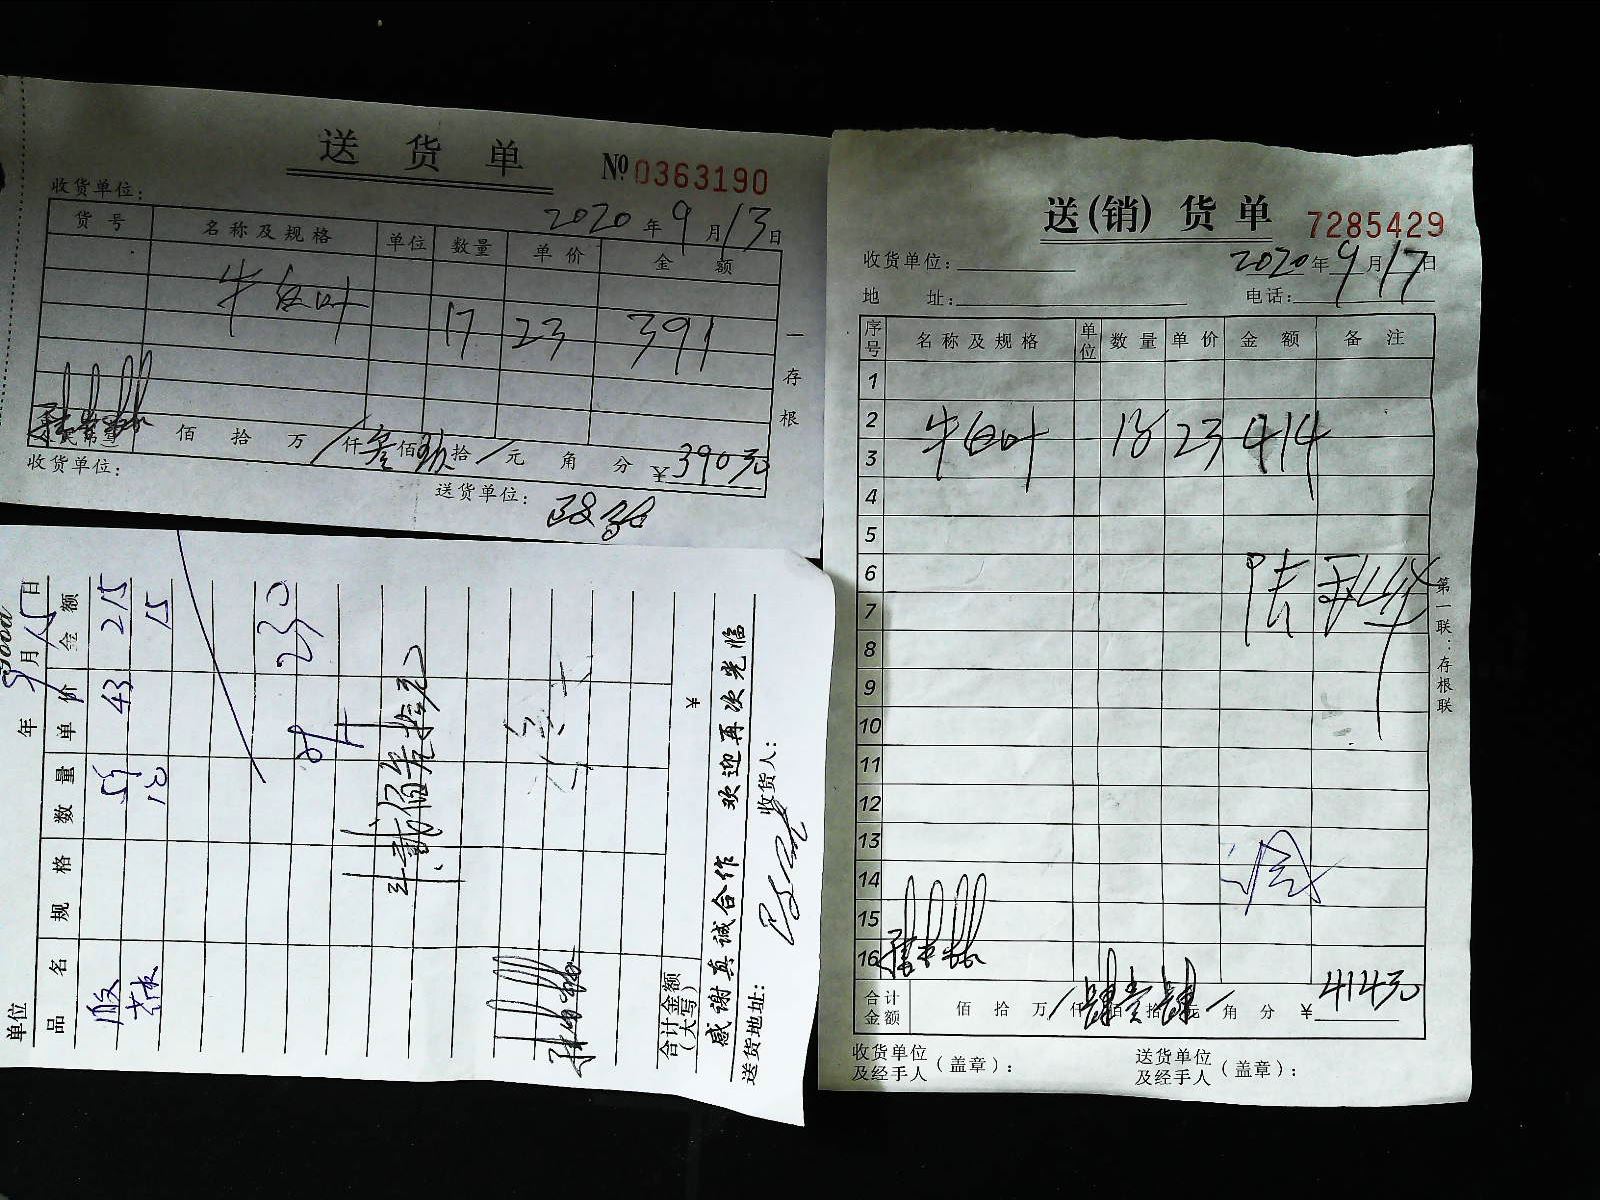 送 货 单
№ 0363190
收货单位:
2020 年 9 月 13 日
货 号 名 称 及 规 格 单位 数量 单 价 金 额
牛白叶 17 23 391
一 存 根
佰 拾 万 / 仟 叁 佰 玖 拾 / 元 角 分 ¥ 390元
收货单位:
送货单位:
单位 年 9 月 15 日
品 名 规 格 数 量 单 价 金 额
43 215
15
230
贰佰叁拾元
合计金额(大写) ¥
感谢真诚合作 欢迎再次光临
送货地址: 收货人:
送(销) 货 单
7285429
收货单位:
2020 年 9 月 17 日
地 址: 电话:
序号 名 称 及 规 格 单位 数 量 单 价 金 额 备 注
1
2
牛白叶 18 23 414
3
4
5
6
7
8
9
10
11
12
13
14
15
16
第一联:存根联
合计金额 佰 拾 万 / 仟 肆 佰 壹 拾 肆 元 / 角 分 ¥ 414元
收货单位及经手人(盖章):
送货单位及经手人(盖章):